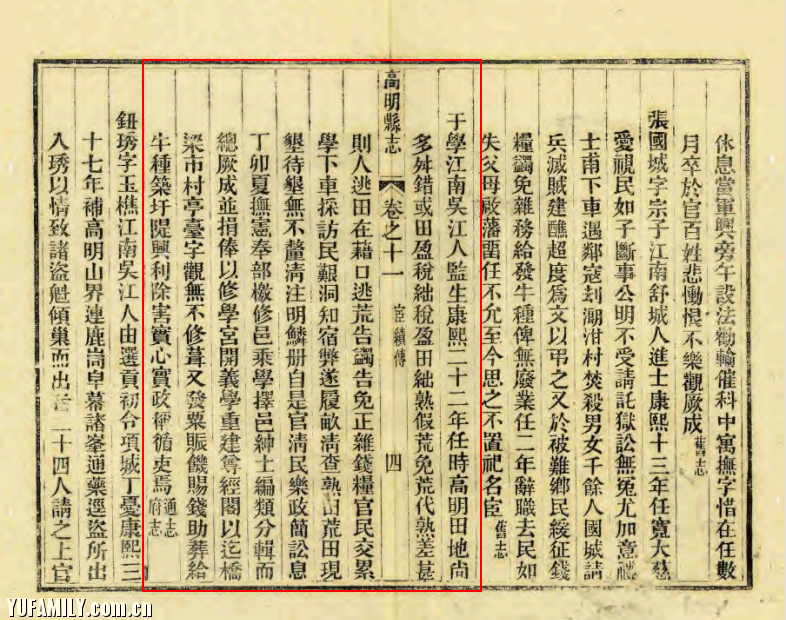 休息當軍興旁午設法勸輸催科中寓撫字惜在任數
月卒於官百姓悲慟恨不樂觀厥成舊志
張國城字宗子江南舒城人進士康熙十三年任寬大慈
愛視民如子斷事公明不受請託獄訟無冤尤加意禮
士甫下車遇鄰寇刦㴾泔村焚殺男女千餘人國城請
兵滅賊建醮超度爲文以弔之又於被難鄉民緩征錢
糧蠲免雜務給發牛種俾無廢業任二年辭職去民如
失父母啟藩留任不允至今思之不置祀名宦舊志
于學江南吳江人監生康熙二十二年任時高明田地尚
多舛錯或田盈稅絀稅盈田絀熟假荒免荒代熟差甚
高明縣志 卷之十一 宦績傳 四
則人逃田在藉口逃荒告蠲告免正雜錢糧官民交累
學下車採訪民艱洞知宿弊遂履畝清查熟田荒田現
墾待墾無不釐清注明鱗册自是官清民樂政簡訟息
丁卯夏撫憲奉部檄修邑乘學擇邑紳士編類分輯而
總厥成並捐俸以修學宮開義學重建尊經閣以迄橋
梁市村亭臺字觀無不修葺又發粟賑饑賜錢助葬給
牛種築圩隄興利除害實心實政稱循吏焉通志府志
鈕琇字玉樵江南吳江人由選貢初令項城丁憂康熙三
十七年補高明山界連鹿峝阜幕諸峯通藥逕盜所出
入琇以情致諸盜魁傾巢而出者二十四人請之上官
YUFAMILY.com.cn